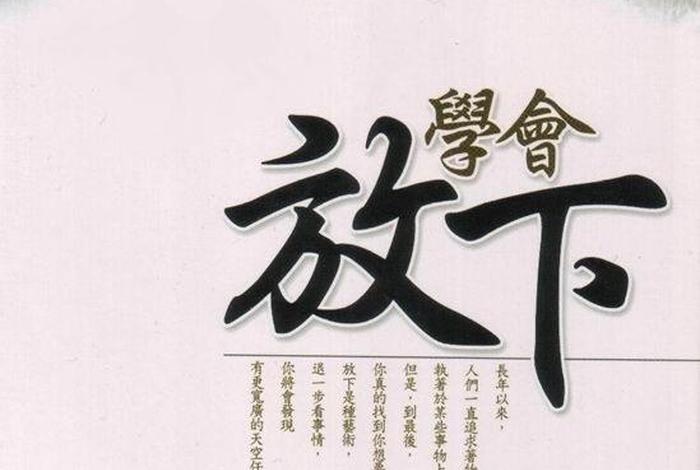 學會
放下
長年以來，
人們一直追求著
執著於某些事物
但是，到最後，
你真的找到你想要
放下是種藝術，
退一步看事情，
你將會發現
有更寬廣的天空任